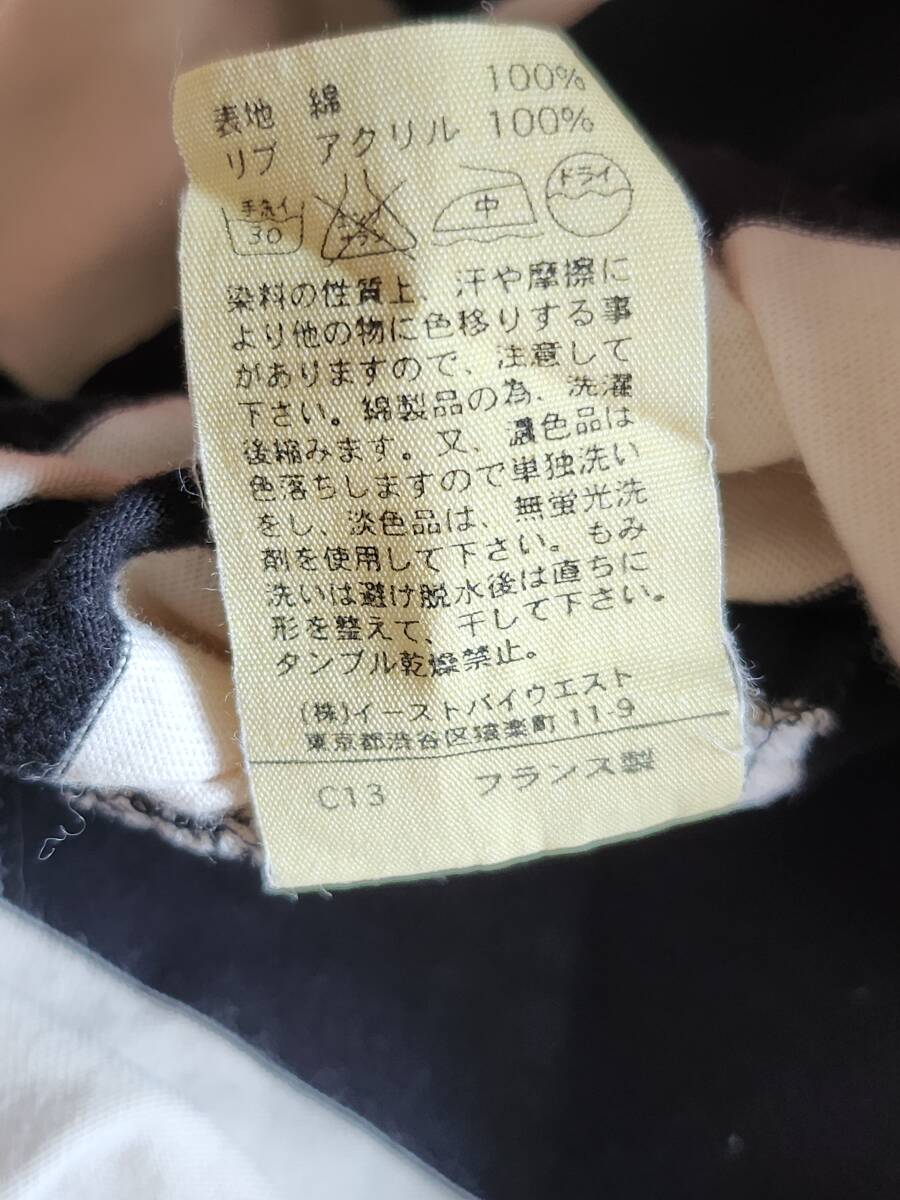 表地 綿 100%
リブ アクリル 100%
手洗イ 30
エンソサラシ 中 ドライ
染料の性質上、汗や摩擦に
より他の物に色移りする事
がありますので、注意して
下さい。綿製品の為、洗濯
後縮みます。又、濃色品は
色落ちしますので単独洗い
をし、淡色品は、無蛍光洗
剤を使用して下さい。もみ
洗いは避け脱水後は直ちに
形を整えて、干して下さい。
タンブル乾燥禁止。
(株)イーストバイウエスト
東京都渋谷区猿楽町 11-9
C13 フランス製